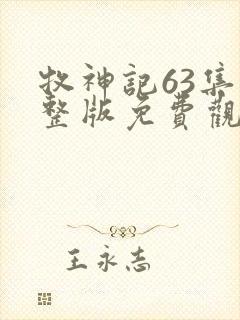 牧神記63集
整版免費觀
王永志